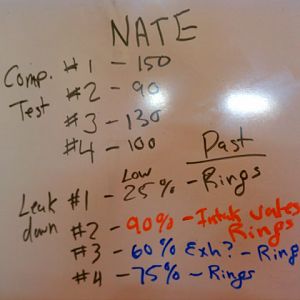 NATE
Comp. Test
#1 - 150
#2 - 90
#3 - 130
#4 - 100
Past
Leak down
#1 - Low 25% - Rings
#2 - 90% - Intak valves Rings
#3 - 60% Exh? - Rings
#4 - 75% - Rings